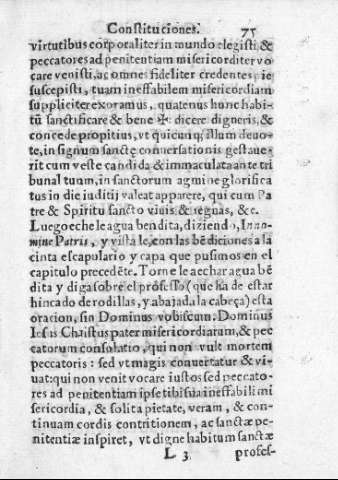 Constituciones. 75
virtutibus corporaliter in mundo elegisti, &
peccatores ad penitentiam misericorditer vo
care venisti, ac omnes fideliter credentes pie
suscepisti, tuam ineffabilem misericordiam
suppliciter exoramus, quatenus hunc habi-
tũ sanctificare & bene ✠ dicere digneris, &
concede propitius, vt quicunq; illum deuo-
te, in signum sanctę conuersationis gestaue-
rit cum veste candida & immaculata ante tri
bunal tuum, in sanctorum agmine glorifica
tus in die iuditij valeat apparere, qui cum Pa
tre & Spiritu sancto viuis & regnas, &c.
Luego eche le agua bendita, diziendo, In no-
mine Patris, y vistale, con las bẽdiciones a la
cinta escapulario y capa que pusimos en el
capitulo precedẽte. Torne le a echar agua bẽ
dita y diga sobre el professo (que ha de estar
hincado de rodillas, y abajada la cabeça) esta
oracion, sin Dominus vobiscum. Dominus
Iesus Christus pater misericordiarum, & pec
catorum consolatio, qui non vult mortem
peccatoris: sed vt magis conuertatur & vi-
uat: qui non venit vocare iustos sed peccato-
res ad penitentiam ipse tibi sua ineffabili mi
sericordia, & solita pietate, veram, & con-
tinuam cordis contritionem, ac sanctæ pe-
nitentiæ inspiret, vt digne habitum sanctæ
L 3 profes-